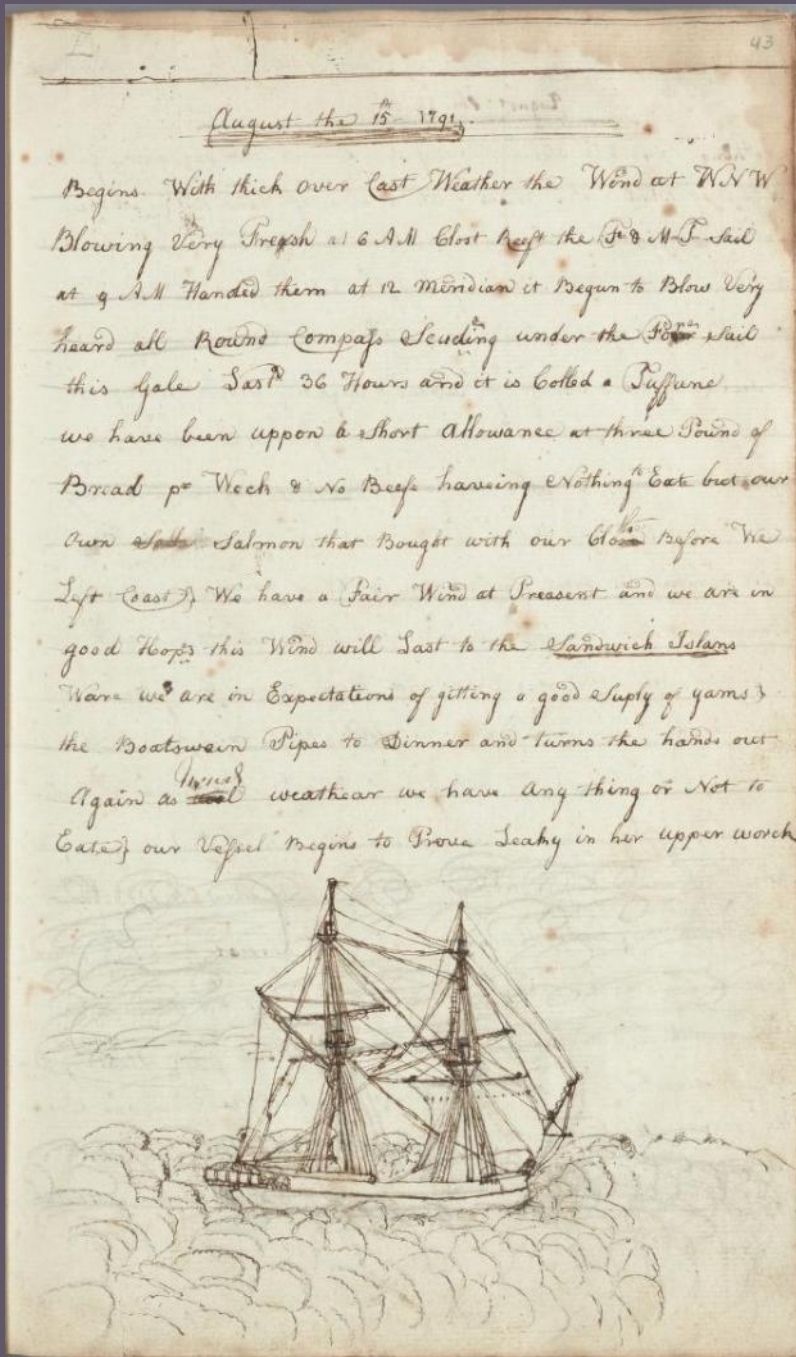 43
August the 15th 1791
Begins With thick over Cast Weather the Wind at WNW
Blowing Very Freash at 6 AM Clost Reeft the F & M T Sail
at 9 AM Handed them at 12 Meridian it Begun to Blow Very
heard all Round Compass Scuding under the Fore Sail
this Gale Last 36 Hours and it is Colled a Tuffune
we have been uppon a Short Allowance at three Pound of
Bread pr Week & No Beefe haveing Nothing to Eate but our
Own Salmon that Bought with our Before We
Left Coast We have a Fair Wind at Preasent and we are in
good Hops this Wind will Last to the Sandwich Islans
Ware we are in Expectations of gitting a good Suply of yams
the Boatswein Pipes to Dinner and turns the hands out
Again as weathear we have Any thing or Not to
Eate our Vessel Begins to Prove Leaky in her upper worck